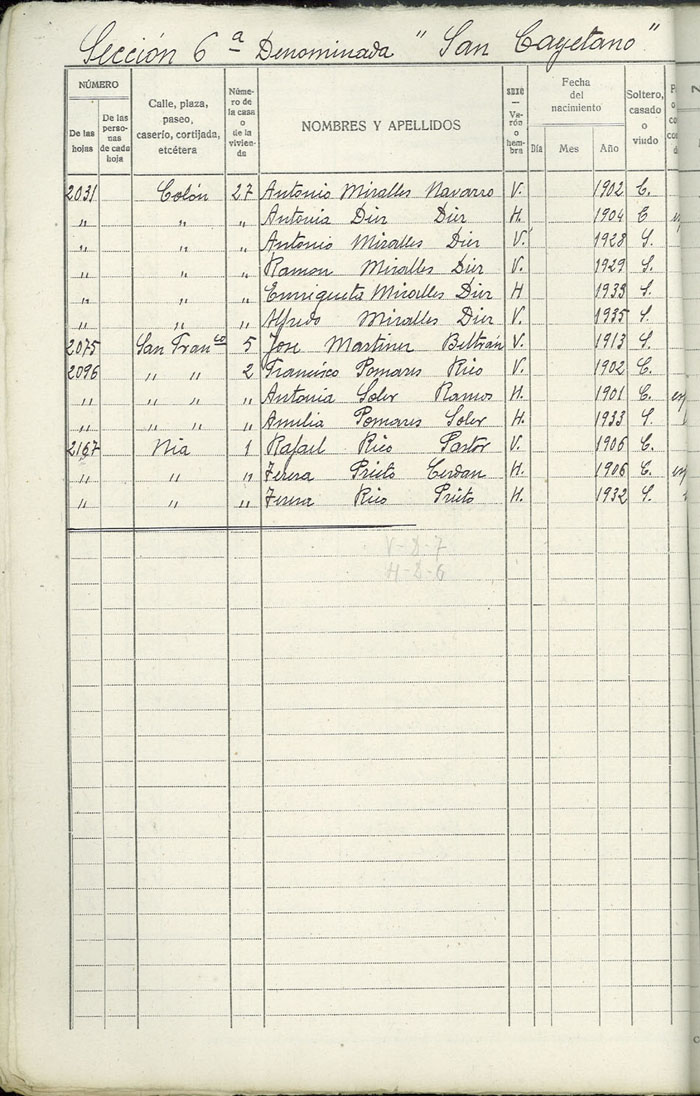 Sección 6ª Denominada " San Cayetano "
NÚMERO
De las hojas
De las perso-nas de cada hoja
Calle, plaza, paseo, caserío, cortijada, etcétera
Núme-ro de la casa o de la vivien-da
NOMBRES Y APELLIDOS
SEXO — Va-rón o hem-bra
Fecha del nacimiento
Día Mes Año
Soltero, casado o viudo
2031 Colón 27 Antonio Miralles Navarro V. 1902 C.
" " " Antonia Dier Dier H. 1904 C
" " " Antonio Miralles Dier V. 1928 S.
" " " Ramon Miralles Dier V. 1929 S.
" " " Enriqueta Miralles Dier H 1933 S.
" " " Alfredo Miralles Dier V. 1935 S.
2075 San Franco 5 Jose Martiner Beltrán V. 1913 S.
2096 " " 2 Francisco Pomares Rico V. 1902 C.
" " " " Antonia Soler Ramos H. 1901 C.
" " " " Amilia Pomares Soler H. 1933 S.
2167 Nia 1 Rafael Rico Pastor V. 1906 C.
" " " Teresa Prieto Cerdan H. 1906 C.
" " " Teresa Rico Prieto H. 1932 S.
V-8-7
H-8-6